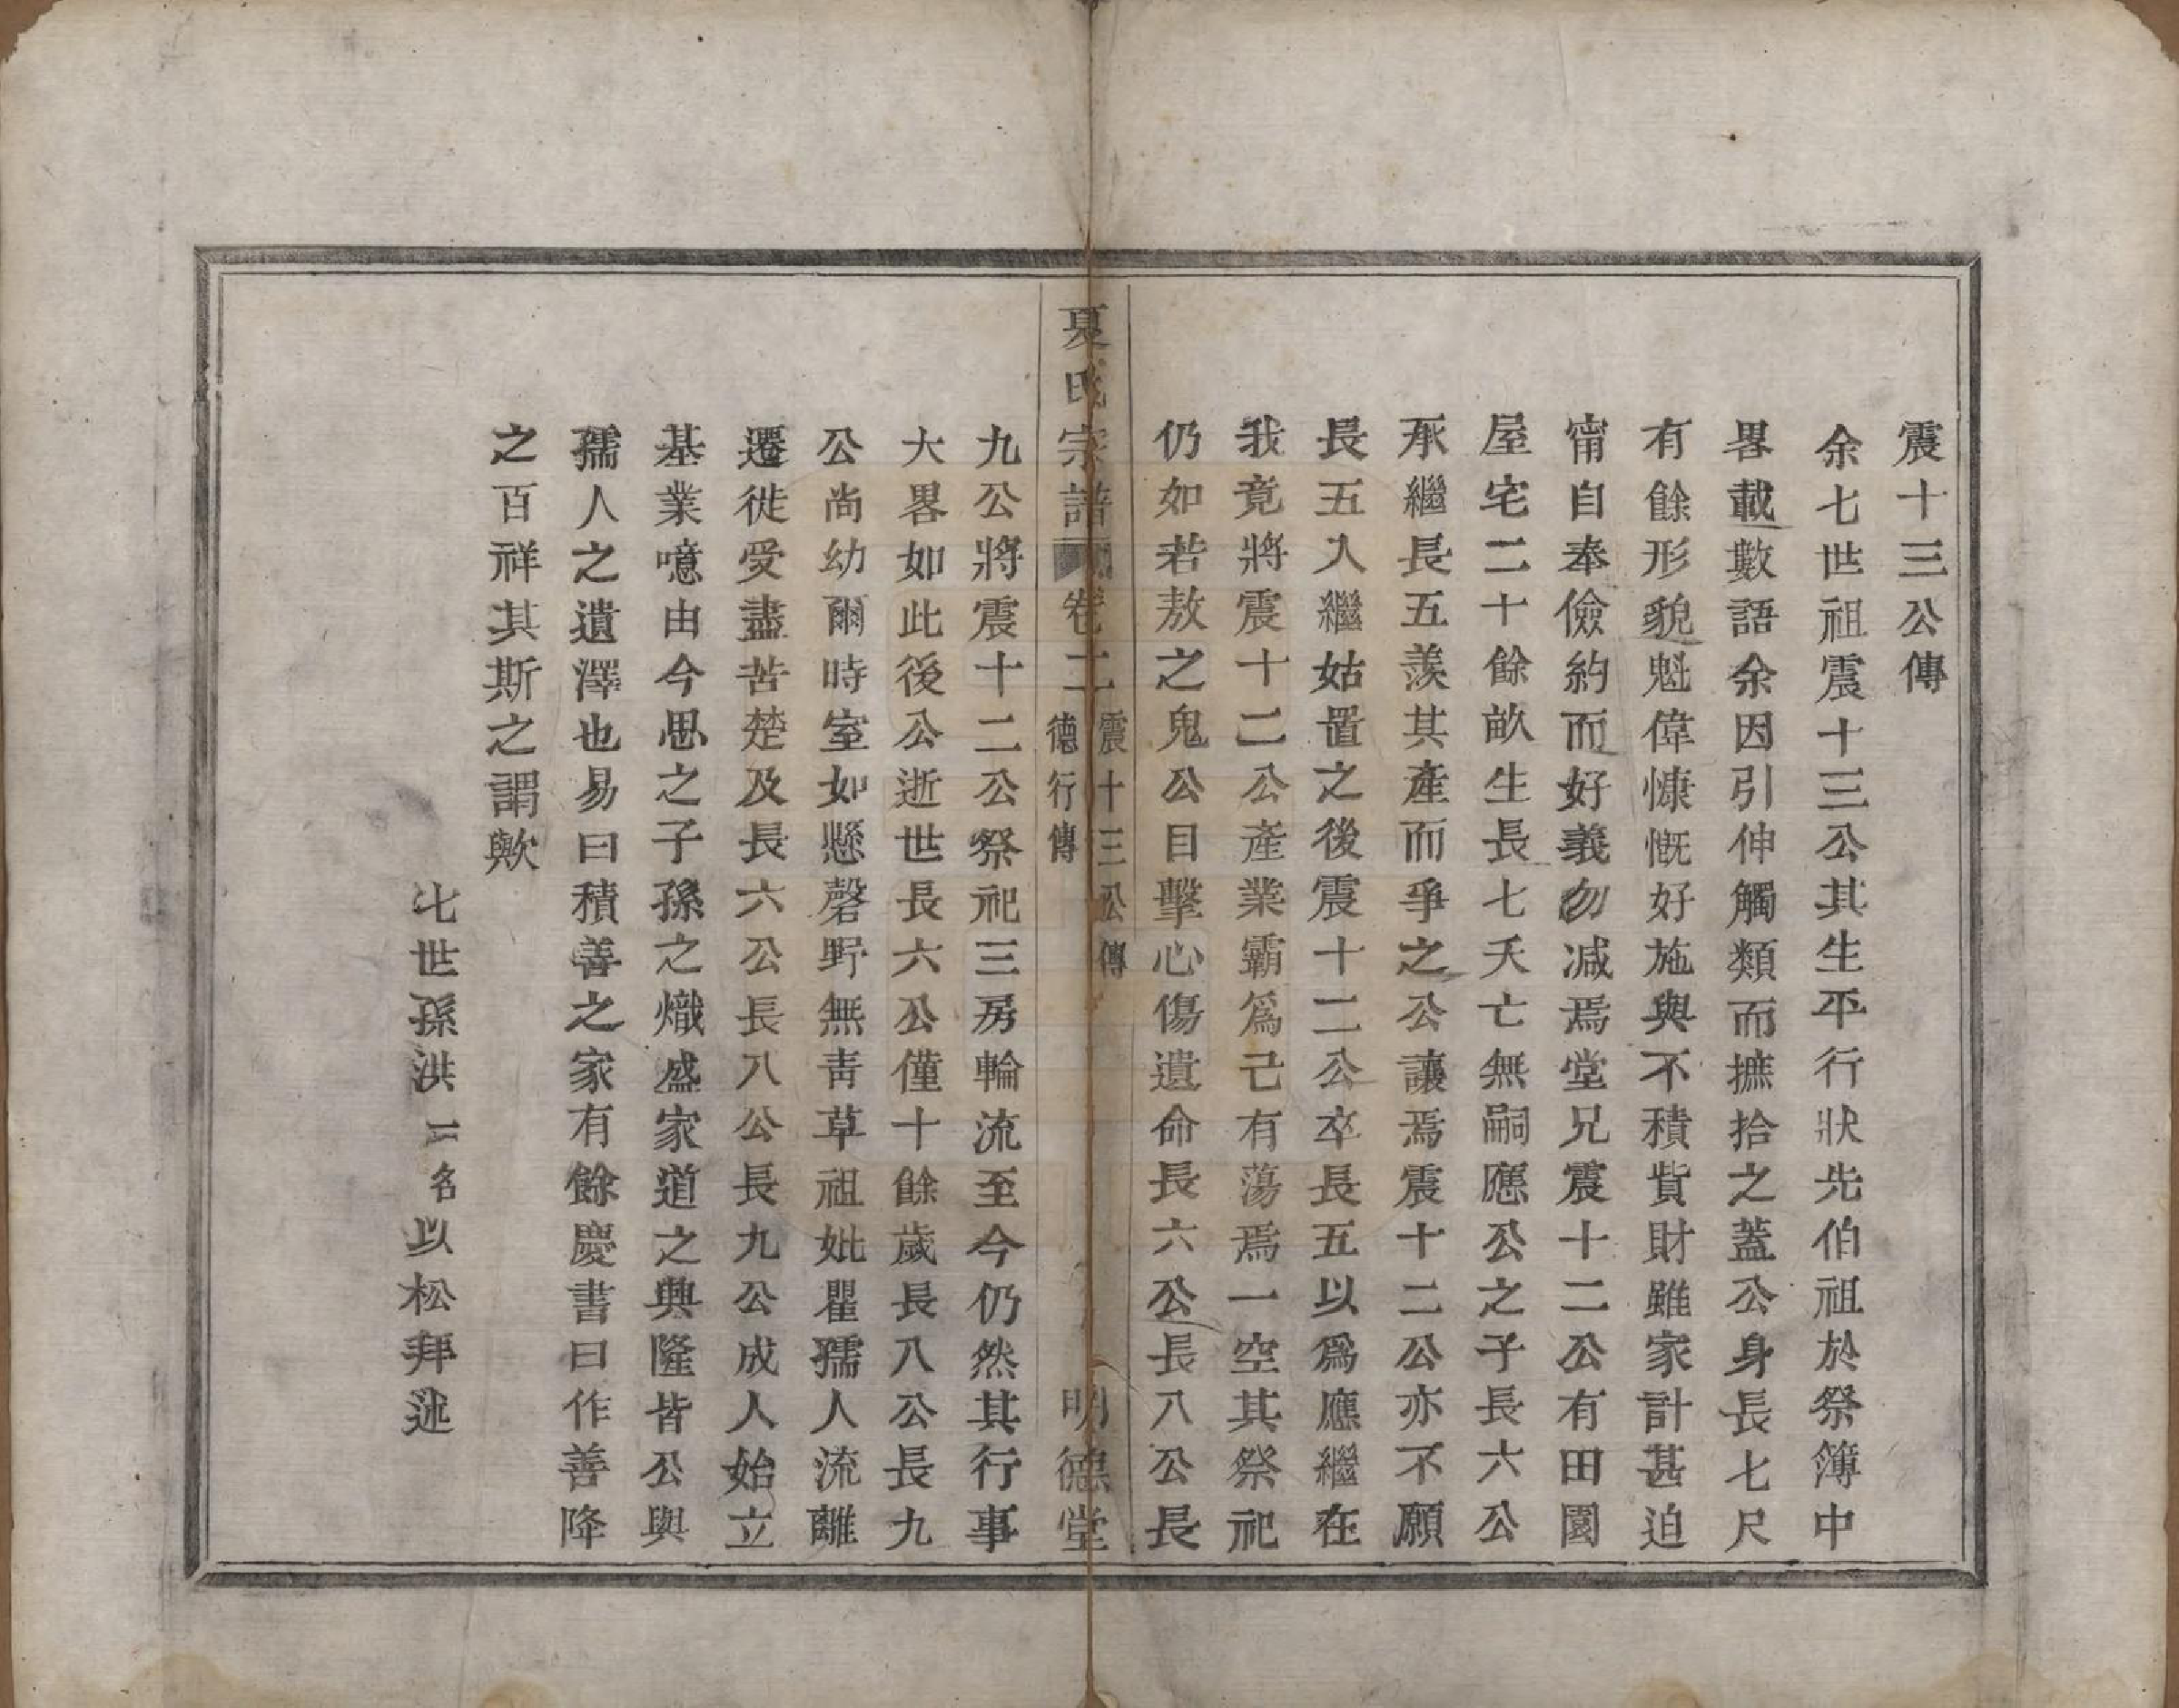 震十三公傳
余七世祖震十三公其生平行狀先伯祖於祭簿中
畧載數語余因引伸觸類而摭拾之蓋公身長七尺
有餘形貌魁偉慷慨好施與不積貲財雖家計甚迫
甯自奉儉約而好義勿减焉堂兄震十二公有田園
屋宅二十餘畝生長七夭亡無嗣應公之子長六公
承繼長五羨其產而爭之公讓焉震十二公亦不願
長五入繼姑置之後震十二公卒長五以爲應繼在
我竟將震十二公產業霸爲己有蕩焉一空其祭祀
仍如若敖之鬼公目擊心傷遺命長六公長八公長
夏氏宗譜 卷二 震十三公傳 德行傳 明德堂
九公將震十二公祭祀三房輪流至今仍然其行事
大畧如此後公逝世長六公僅十餘歲長八公長九
公尚幼爾時室如懸磬野無靑草祖妣瞿孺人流離
遷徙受盡苦楚及長六公長八公長九公成人始立
基業噫由今思之子孫之熾盛家道之興隆皆公與
孺人之遺澤也易曰積善之家有餘慶書曰作善降
之百祥其斯之謂歟
七世孫洪一名以松拜述